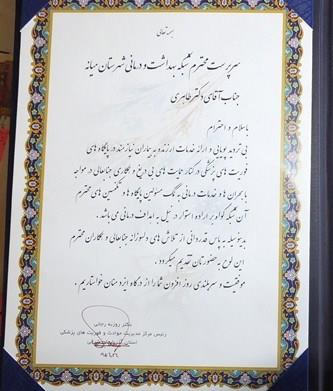 بسمه تعالی
سرپرست محترم شبکه بهداشت و درمانی شهرستان میانه
جناب آقای دکتر طاهری
با سلام و احترام
بی تردید پویایی و ارائه خدمات ارزنده به بیماران نیازمند در پایگاه های
فوریت های پزشکی در کنار حمایت های بی دریغ و همکاری جنابعالی در مواجهه
با بحران ها و خدمات درمانی به کمک مسئولین پایگاه ها و تکنسین های محترم
آن شبکه گواه بر اراده استوار در نیل به اهداف درمانی می باشد.
بدینوسیله به پاس قدردانی از تلاش های دلسوزانه جنابعالی و همکاران محترم
این لوح به حضورتان تقدیم میگردد.
موفقیت و سربلندی روز افزون شما را از درگاه ایزد منان خواستاریم.
دکتر روزبه رجایی
رئیس مرکز مدیریت حوادث و فوریت های پزشکی
استان